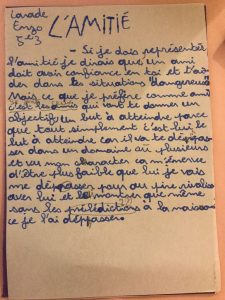 Lavade
Enzo
5e3
L'AMITIÉ
- Si je dois représenter
l'amitié je dirais que un ami
doit avoir confiance en toi et t'ai
der dans les situations dangereuse
Mais ce que je préfère comme ami
c'est les amis qui vont te donner un
objectif un but à atteindre parce
que tout simplement c'est lui le
but à atteindre car il va te dépas
ser dans un domaine où plusieurs
et vu mon character ça m'énerve
d'être plus faible que lui je vais
me dépasser pour au fine rivalise
avec lui et lui montrer que même
sans les prédictions à la
ce je l'ai dépasser.